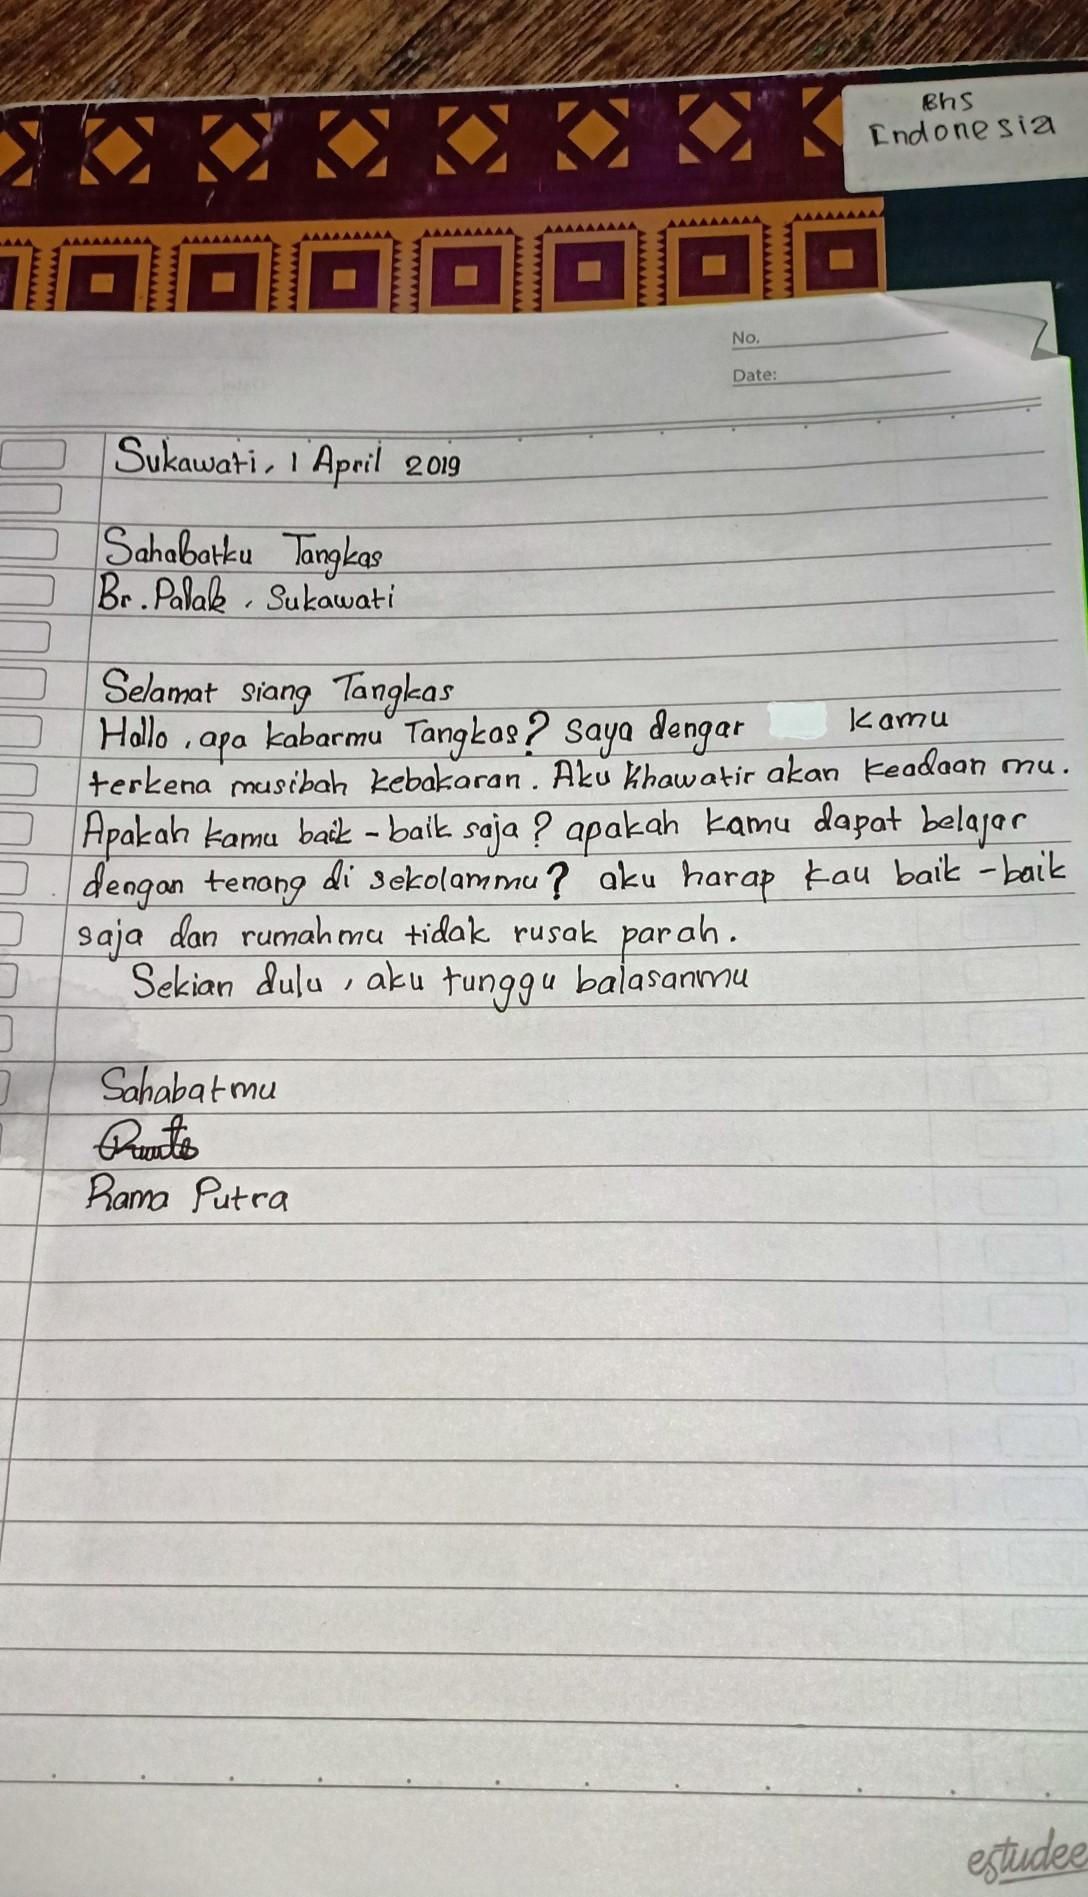 Bhs
Indonesia
No.
Date:
Sukawati, 1 April 2019
Sahabatku Tangkas
Br. Palak, Sukawati
Selamat siang Tangkas
Hallo, apa kabarmu Tangkas? Saya dengar kamu
terkena musibah kebakaran. Aku khawatir akan keadaan mu.
Apakah kamu baik-baik saja? apakah kamu dapat belajar
dengan tenang di sekolammu? aku harap kau baik-baik
saja dan rumahmu tidak rusak parah.
Sekian dulu, aku tunggu balasanmu
Sahabatmu
Rama Putra
estudee